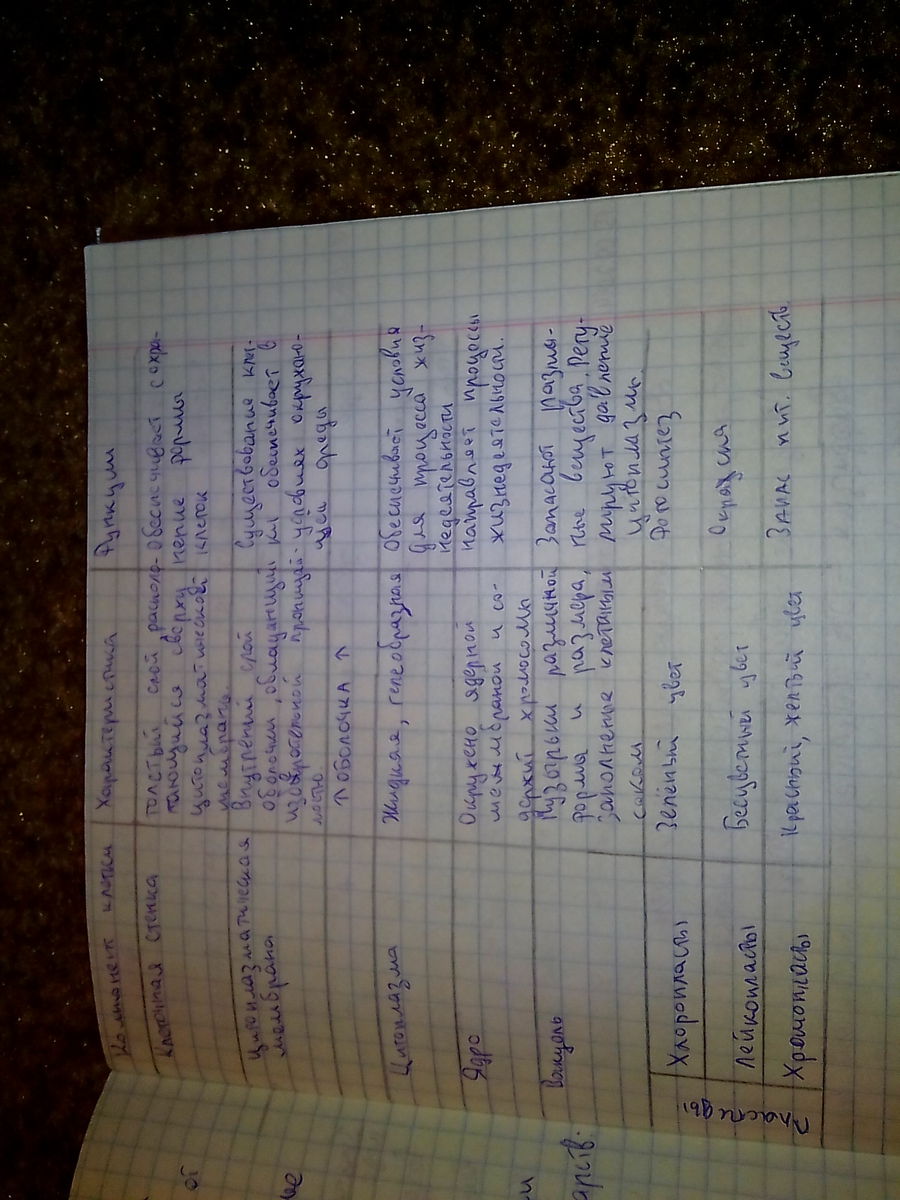 Компонент клетки Характеристика Функции
Клеточная стенка
толстый слой располо-
гающийся сверху
цитоплазматической
мембраны
Обеспечивает сохра-
нение формы
клеток
Цитоплазматическая
мембрана
Внутрений слой
оболочки, обладающий
избирательной проницай-
мостью
Существование клет-
ки обеспечивает в
условиях окружаю-
щей среды
↑ ОБОЛОЧКА ↑
Цитоплазма
Жидкая, гелеобразная
Обеспечивает условия
для процесса жиз-
недеятельности
Ядро
Окружено ядерной
мембраной и со-
держит хромосомы
направляет процессы
жизнедеятельности.
Вакуоль
Пузырьки различной
форма и размера,
заполненые клетаным
соком
Запасают разли-
ные вещества. Регу-
лируют давление
цитоплазмы.
Пластиды
Хлоропласты
Зелёный цвет
Фотоситез
Лейкопласты
Бесцветный цвет
Окраска
Хромопласты
Красный, желтый цвет
ЗАПАС пит. веществ
от
арств.